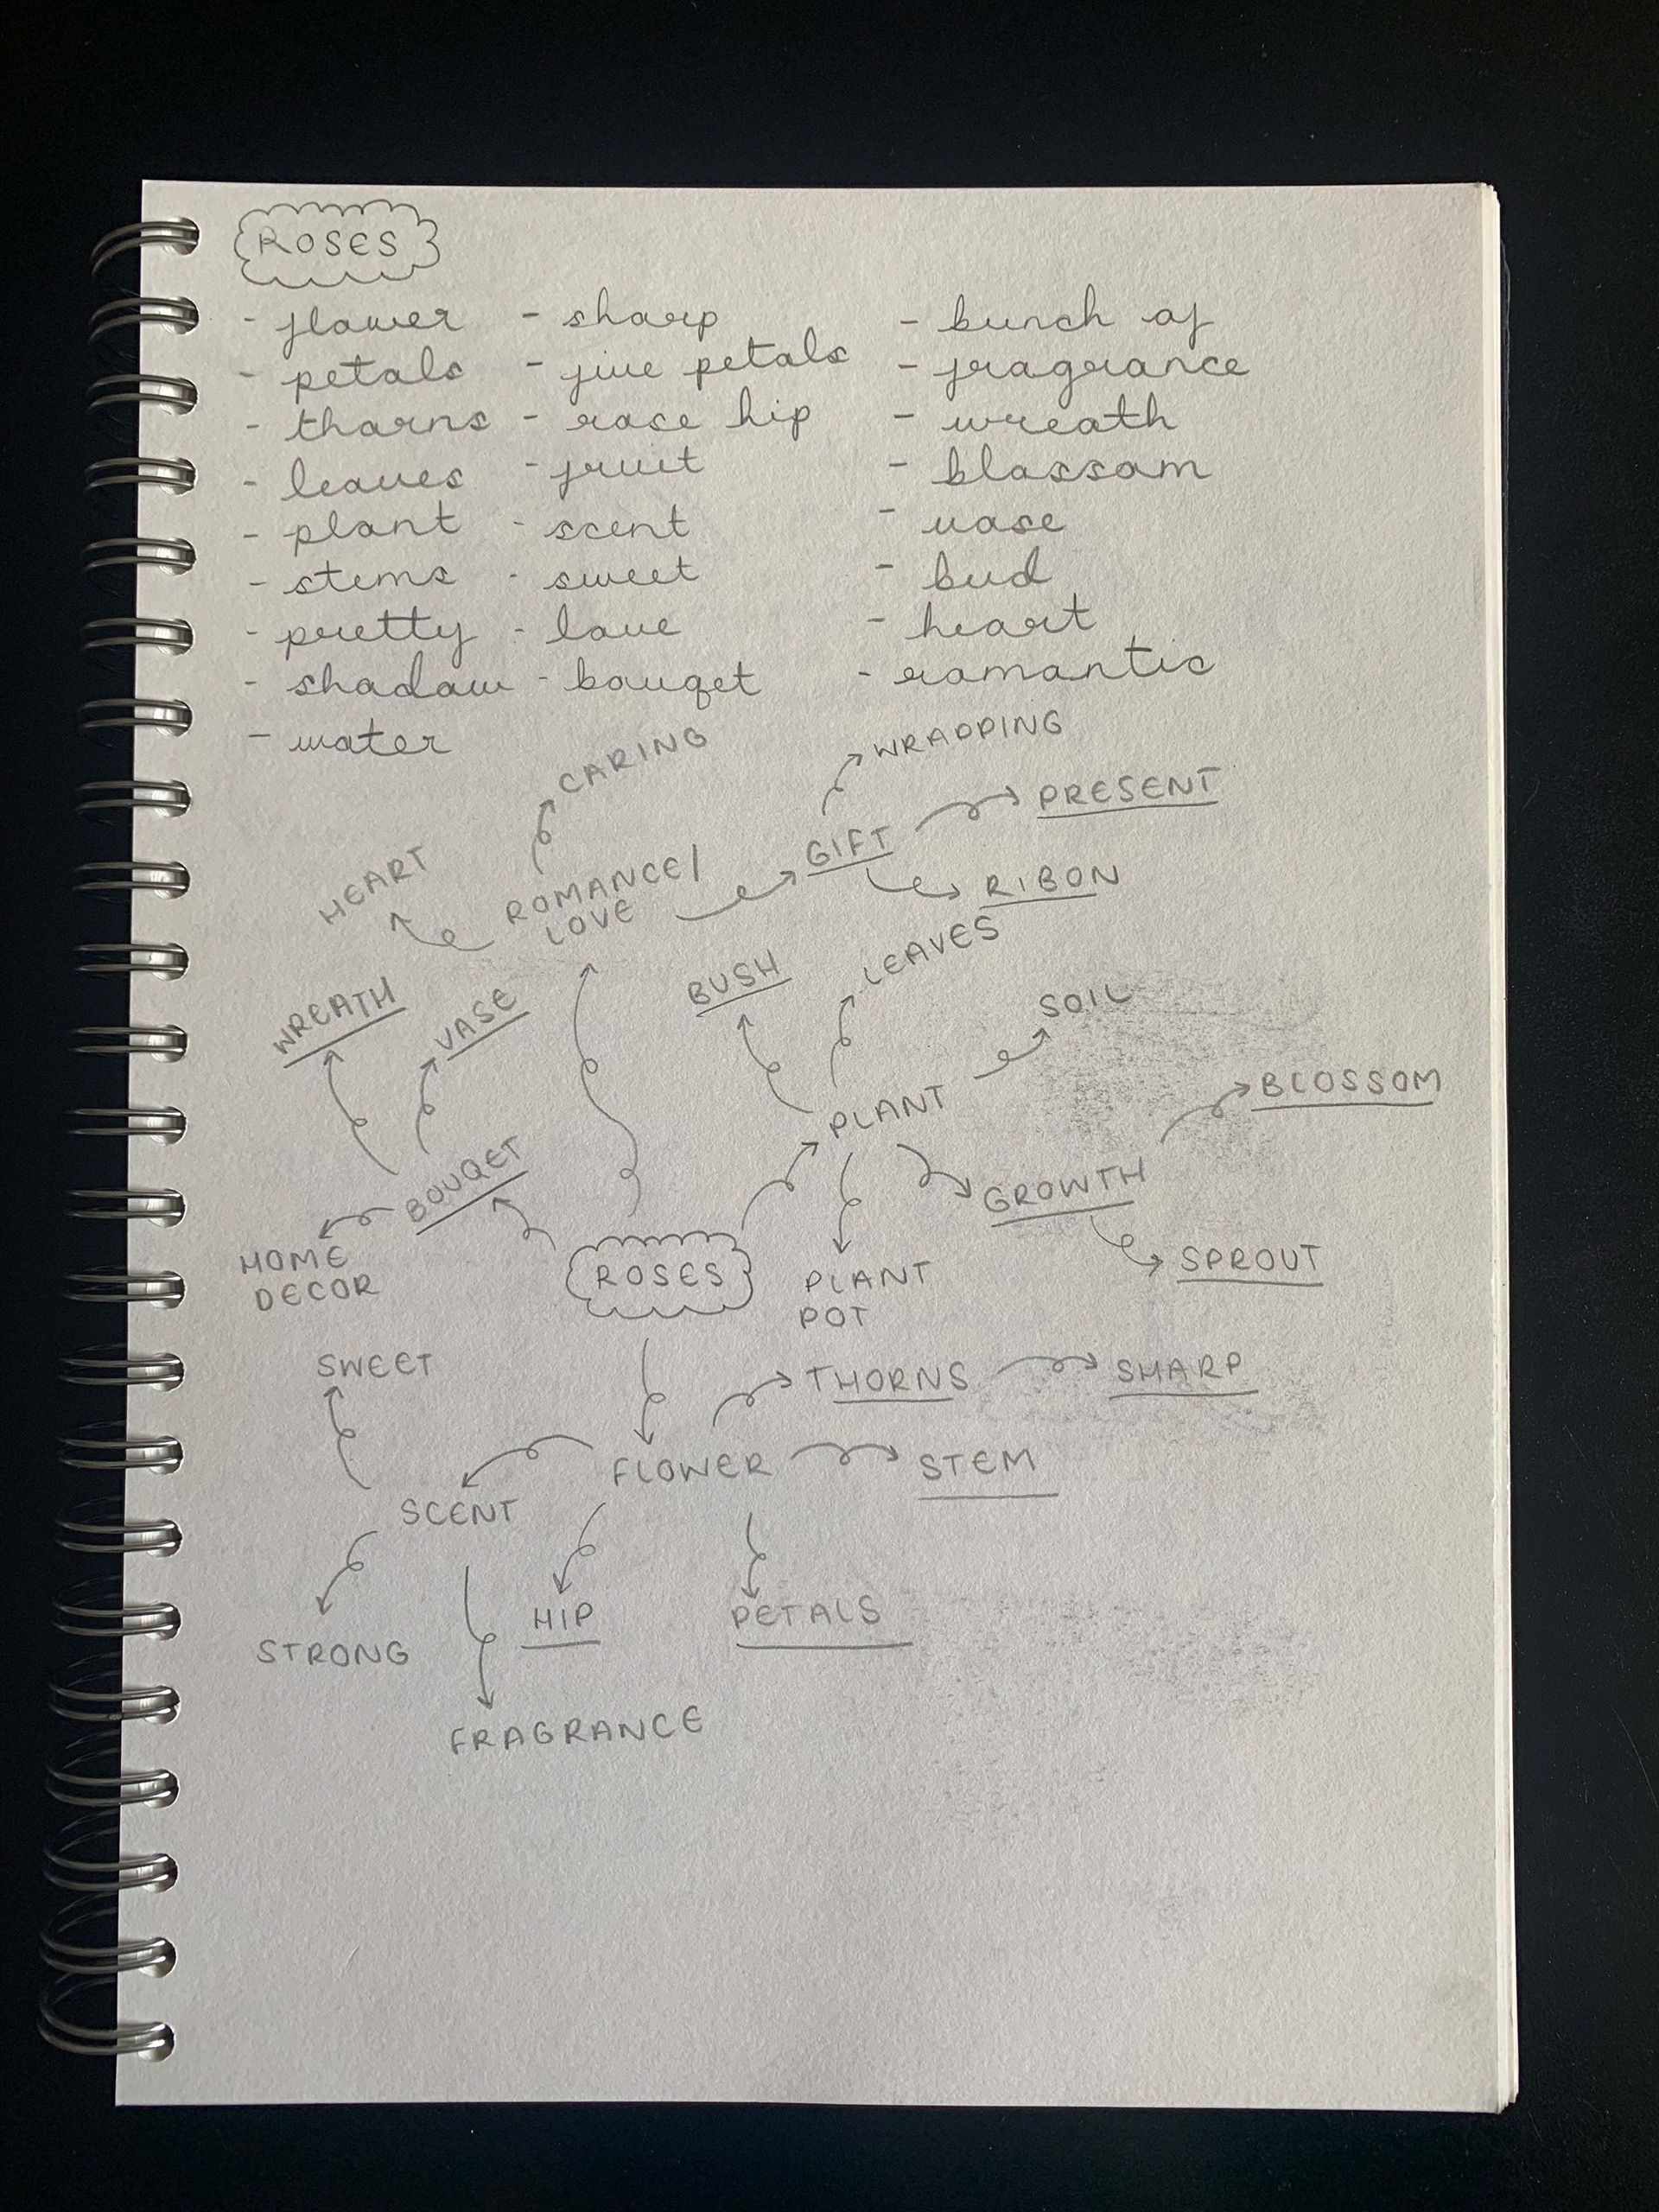 ROSES
- flower
- petals
- thorns
- leaves
- plant
- stems
- pretty
- shadow
- water
- sharp
- five petals
- rose hip
- fruit
- scent
- sweet
- love
- bouqet
- bunch of
- fragrance
- wreath
- blossom
- vase
- bud
- heart
- romantic
CARING
WRAPPING
PRESENT
GIFT
RIBON
HEART
ROMANCE/
LOVE
BUSH
LEAVES
SOIL
WREATH
VASE
PLANT
BLOSSOM
BOUQET
GROWTH
HOME
DECOR
ROSES
PLANT
POT
SPROUT
SWEET
THORNS
SHARP
FLOWER
STEM
SCENT
HIP
PETALS
STRONG
FRAGRANCE